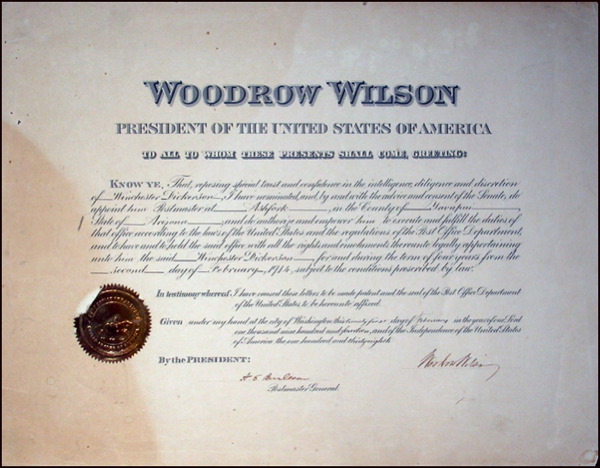 WOODROW WILSON
PRESIDENT OF THE UNITED STATES OF AMERICA
TO ALL TO WHOM THESE PRESENTS SHALL COME, GREETING:
KNOW YE, That, reposing special trust and confidence in the intelligence, diligence and discretion
of Winchester Dickerson, I have nominated, and, by and with the advice and consent of the Senate, do
appoint him Postmaster at Ashfork, in the County of Yavapai
State of Arizona, and do authorize and empower him to execute and fulfill the duties of
that office according to the laws of the United States and the regulations of the Post Office Department,
and to have and to hold the said office with all the rights and emoluments thereunto legally appertaining
unto him the said Winchester Dickerson for and during the term of four years from the
second day of February, 1914, subject to the conditions prescribed by law.
In testimony whereof I have caused these letters to be made patent and the seal of the Post Office Department
of the United States to be hereunto affixed.
Given under my hand at the city of Washington this twenty first day of February in the year of our Lord
one thousand nine hundred and fourteen, and of the Independence of the United States
of America the one hundred and thirty eighth
By the PRESIDENT:
Woodrow Wilson
A S Burleson
Postmaster General.